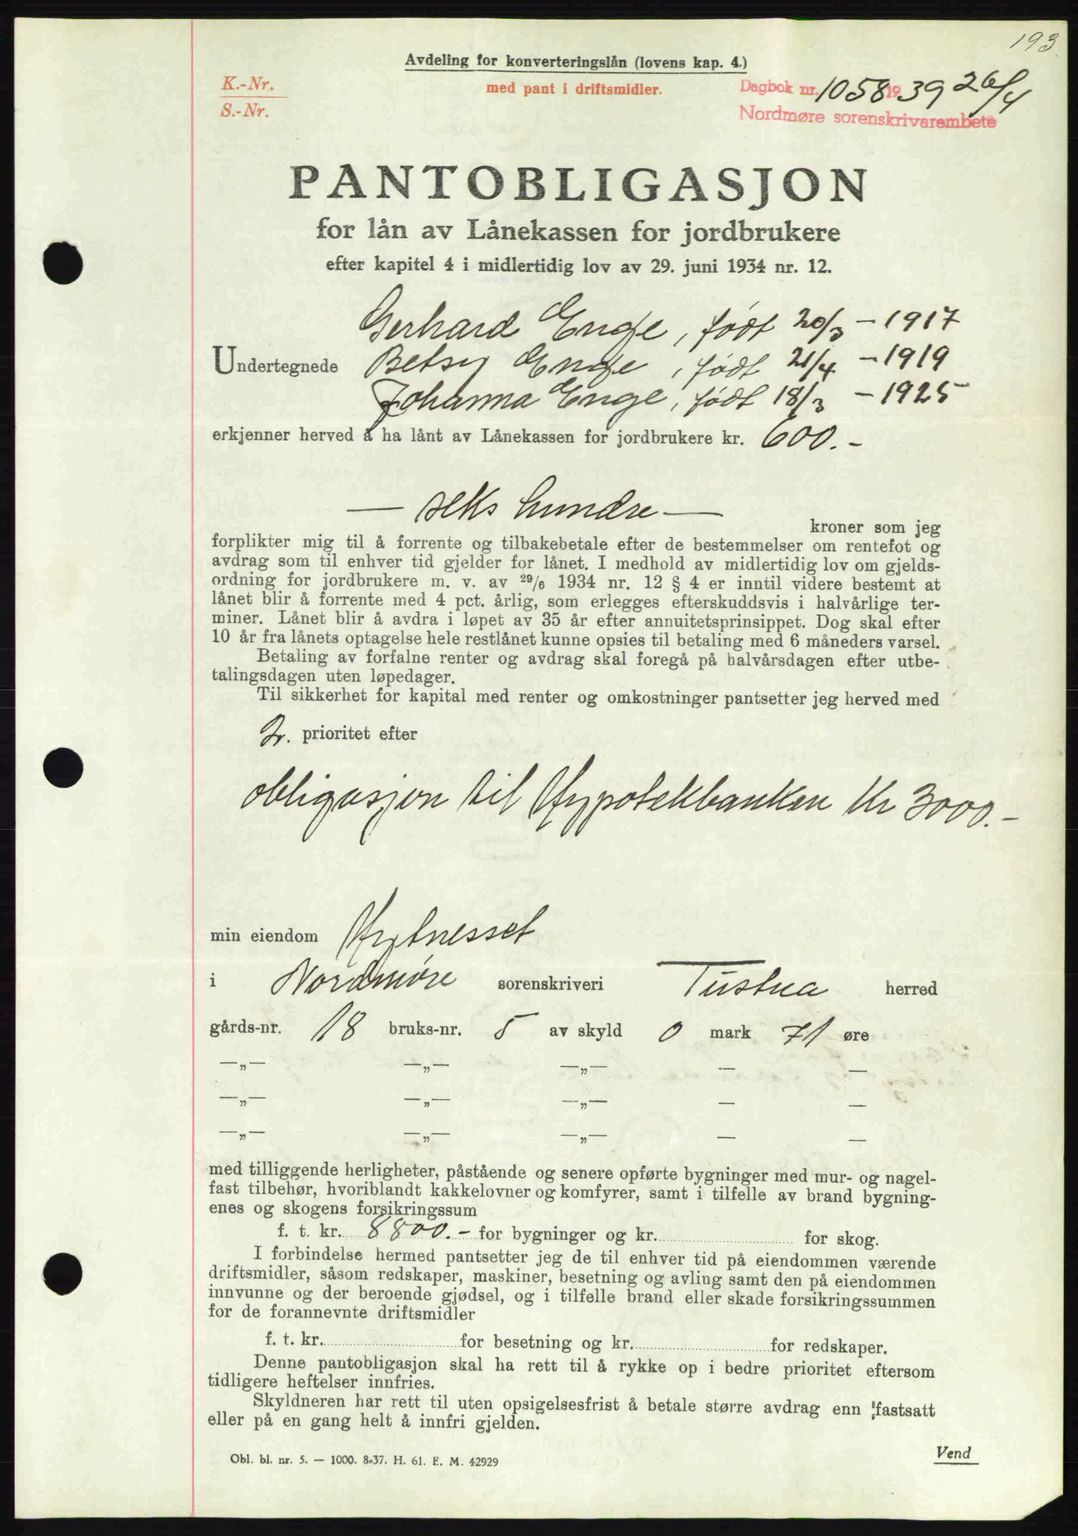 193
Avdeling for konverteringslån (lovens kap. 4.)
K.-Nr.
med pant i driftsmidler.
Dagbok nr. 1058 1939 26/4
S.-Nr.
Nordmøre sorenskrivarembete
PANTOBLIGASJON
for lån av Lånekassen for jordbrukere
efter kapitel 4 i midlertidig lov av 29. juni 1934 nr. 12.
Gerhard Enge, født 20/3 - 1917
Undertegnede Betsy Enge, født 21/4 - 1919
Johanna Enge, født 18/3 - 1925
erkjenner herved å ha lånt av Lånekassen for jordbrukere kr. 600.-
— seks hundre —
kroner som jeg
forplikter mig til å forrente og tilbakebetale efter de bestemmelser om rentefot og
avdrag som til enhver tid gjelder for lånet. I medhold av midlertidig lov om gjelds-
ordning for jordbrukere m. v. av 29/6 1934 nr. 12 § 4 er inntil videre bestemt at
lånet blir å forrente med 4 pct. årlig, som erlegges efterskuddsvis i halvårlige ter-
miner. Lånet blir å avdra i løpet av 35 år efter annuitetsprinsippet. Dog skal efter
10 år fra lånets optagelse hele restlånet kunne opsies til betaling med 6 måneders varsel.
Betaling av forfalne renter og avdrag skal foregå på halvårsdagen efter utbe-
talingsdagen uten løpedager.
Til sikkerhet for kapital med renter og omkostninger pantsetter jeg herved med
2. prioritet efter
obligasjon til Hypotekbanken Kr 3000.-
min eiendom Hytnesset
i Nordmøre sorenskriveri Tustna herred
gårds-nr. 18 bruks-nr. 5 av skyld 0 mark 71 øre
—„— —„— —„— — —
—„— —„— —„— — —
—„— —„— —„— — —
med tilliggende herligheter, påstående og senere opførte bygninger med mur- og nagel-
fast tilbehør, hvoriblandt kakkelovner og komfyrer, samt i tilfelle av brand bygning-
enes og skogens forsikringssum
f. t. kr. 8800.- for bygninger og kr. for skog.
I forbindelse hermed pantsetter jeg de til enhver tid på eiendommen værende
driftsmidler, såsom redskaper, maskiner, besetning og avling samt den på eiendommen
innvunne og der beroende gjødsel, og i tilfelle brand eller skade forsikringssummen
for de forannevnte driftsmidler
f. t. kr. for besetning og kr. for redskaper.
Denne pantobligasjon skal ha rett til å rykke op i bedre prioritet eftersom
tidligere heftelser innfries.
Skyldneren har rett til uten opsigelsesfrist å betale større avdrag enn fastsatt
eller på en gang helt å innfri gjelden.
Obl. bl. nr. 5. — 1000. 8-37. H. 61. E. M. 42929
Vend